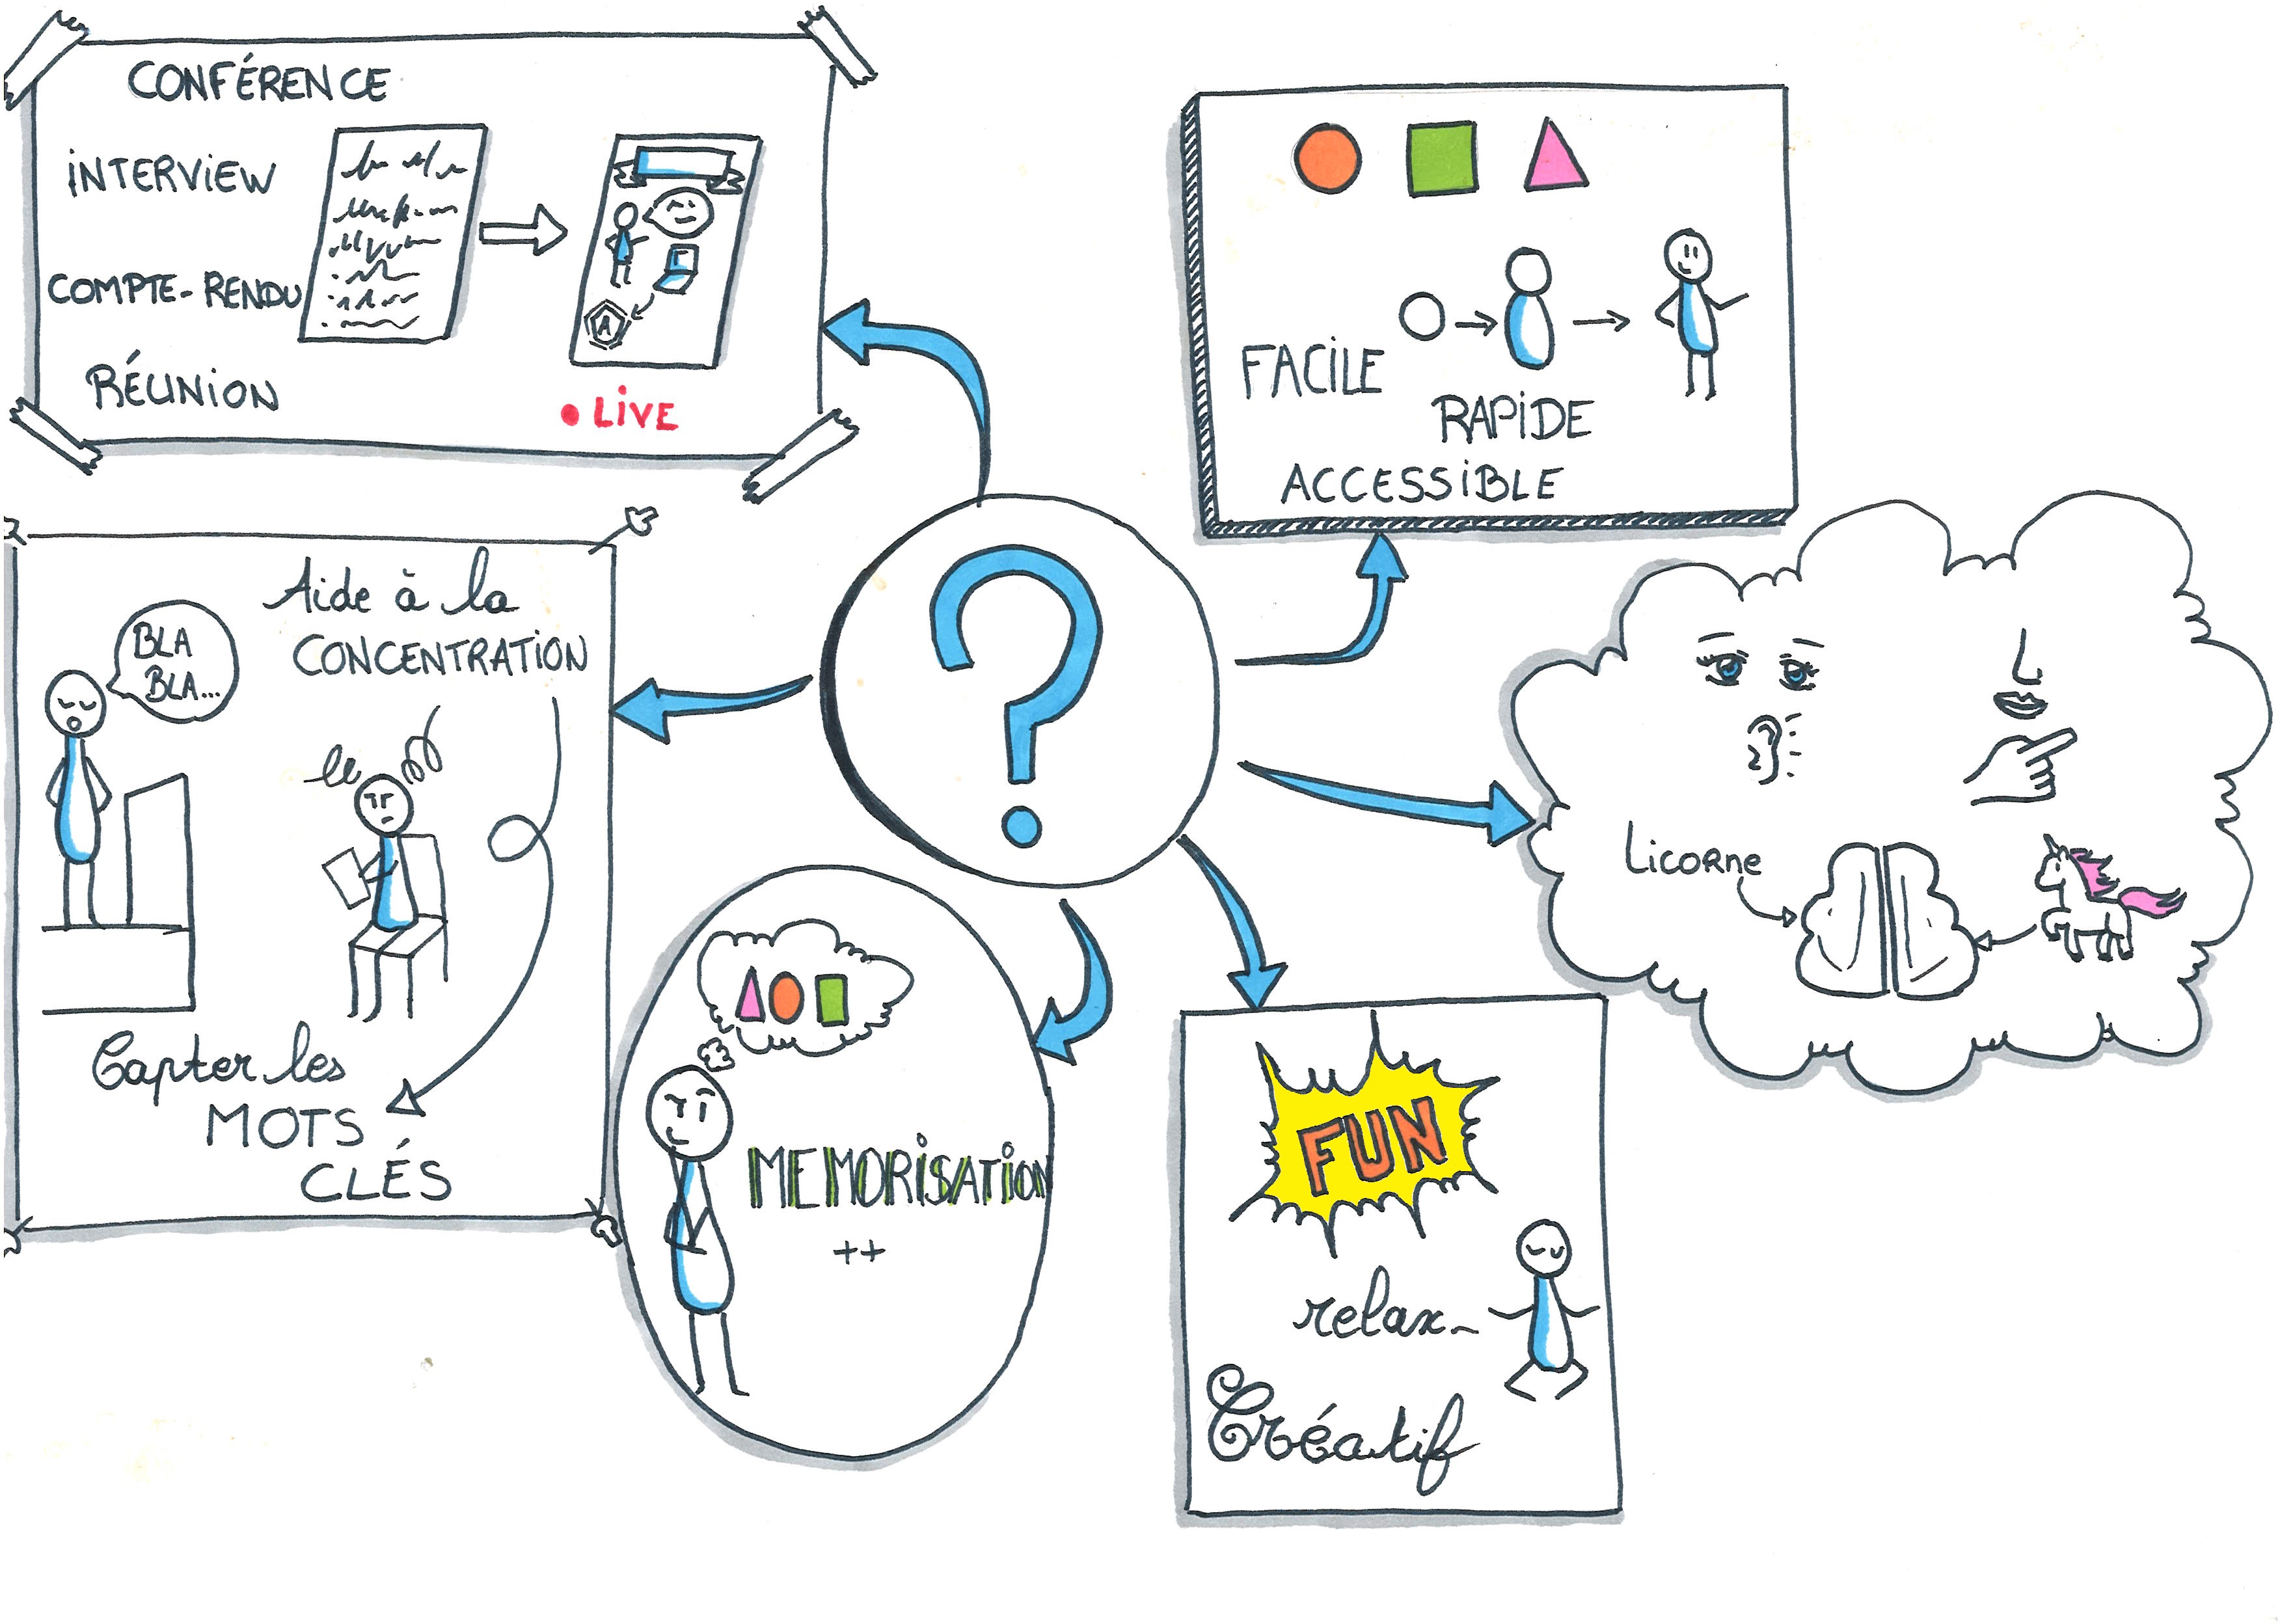 CONFÉRENCE
INTERVIEW
COMPTE-RENDU
RÉUNION
LIVE
A
FACILE
RAPIDE
ACCESSIBLE
Aide à la
CONCENTRATION
BLA
BLA...
Capter les
MOTS
CLÉS
?
Licorne
MEMORISATION
++
FUN
relax
Créatif